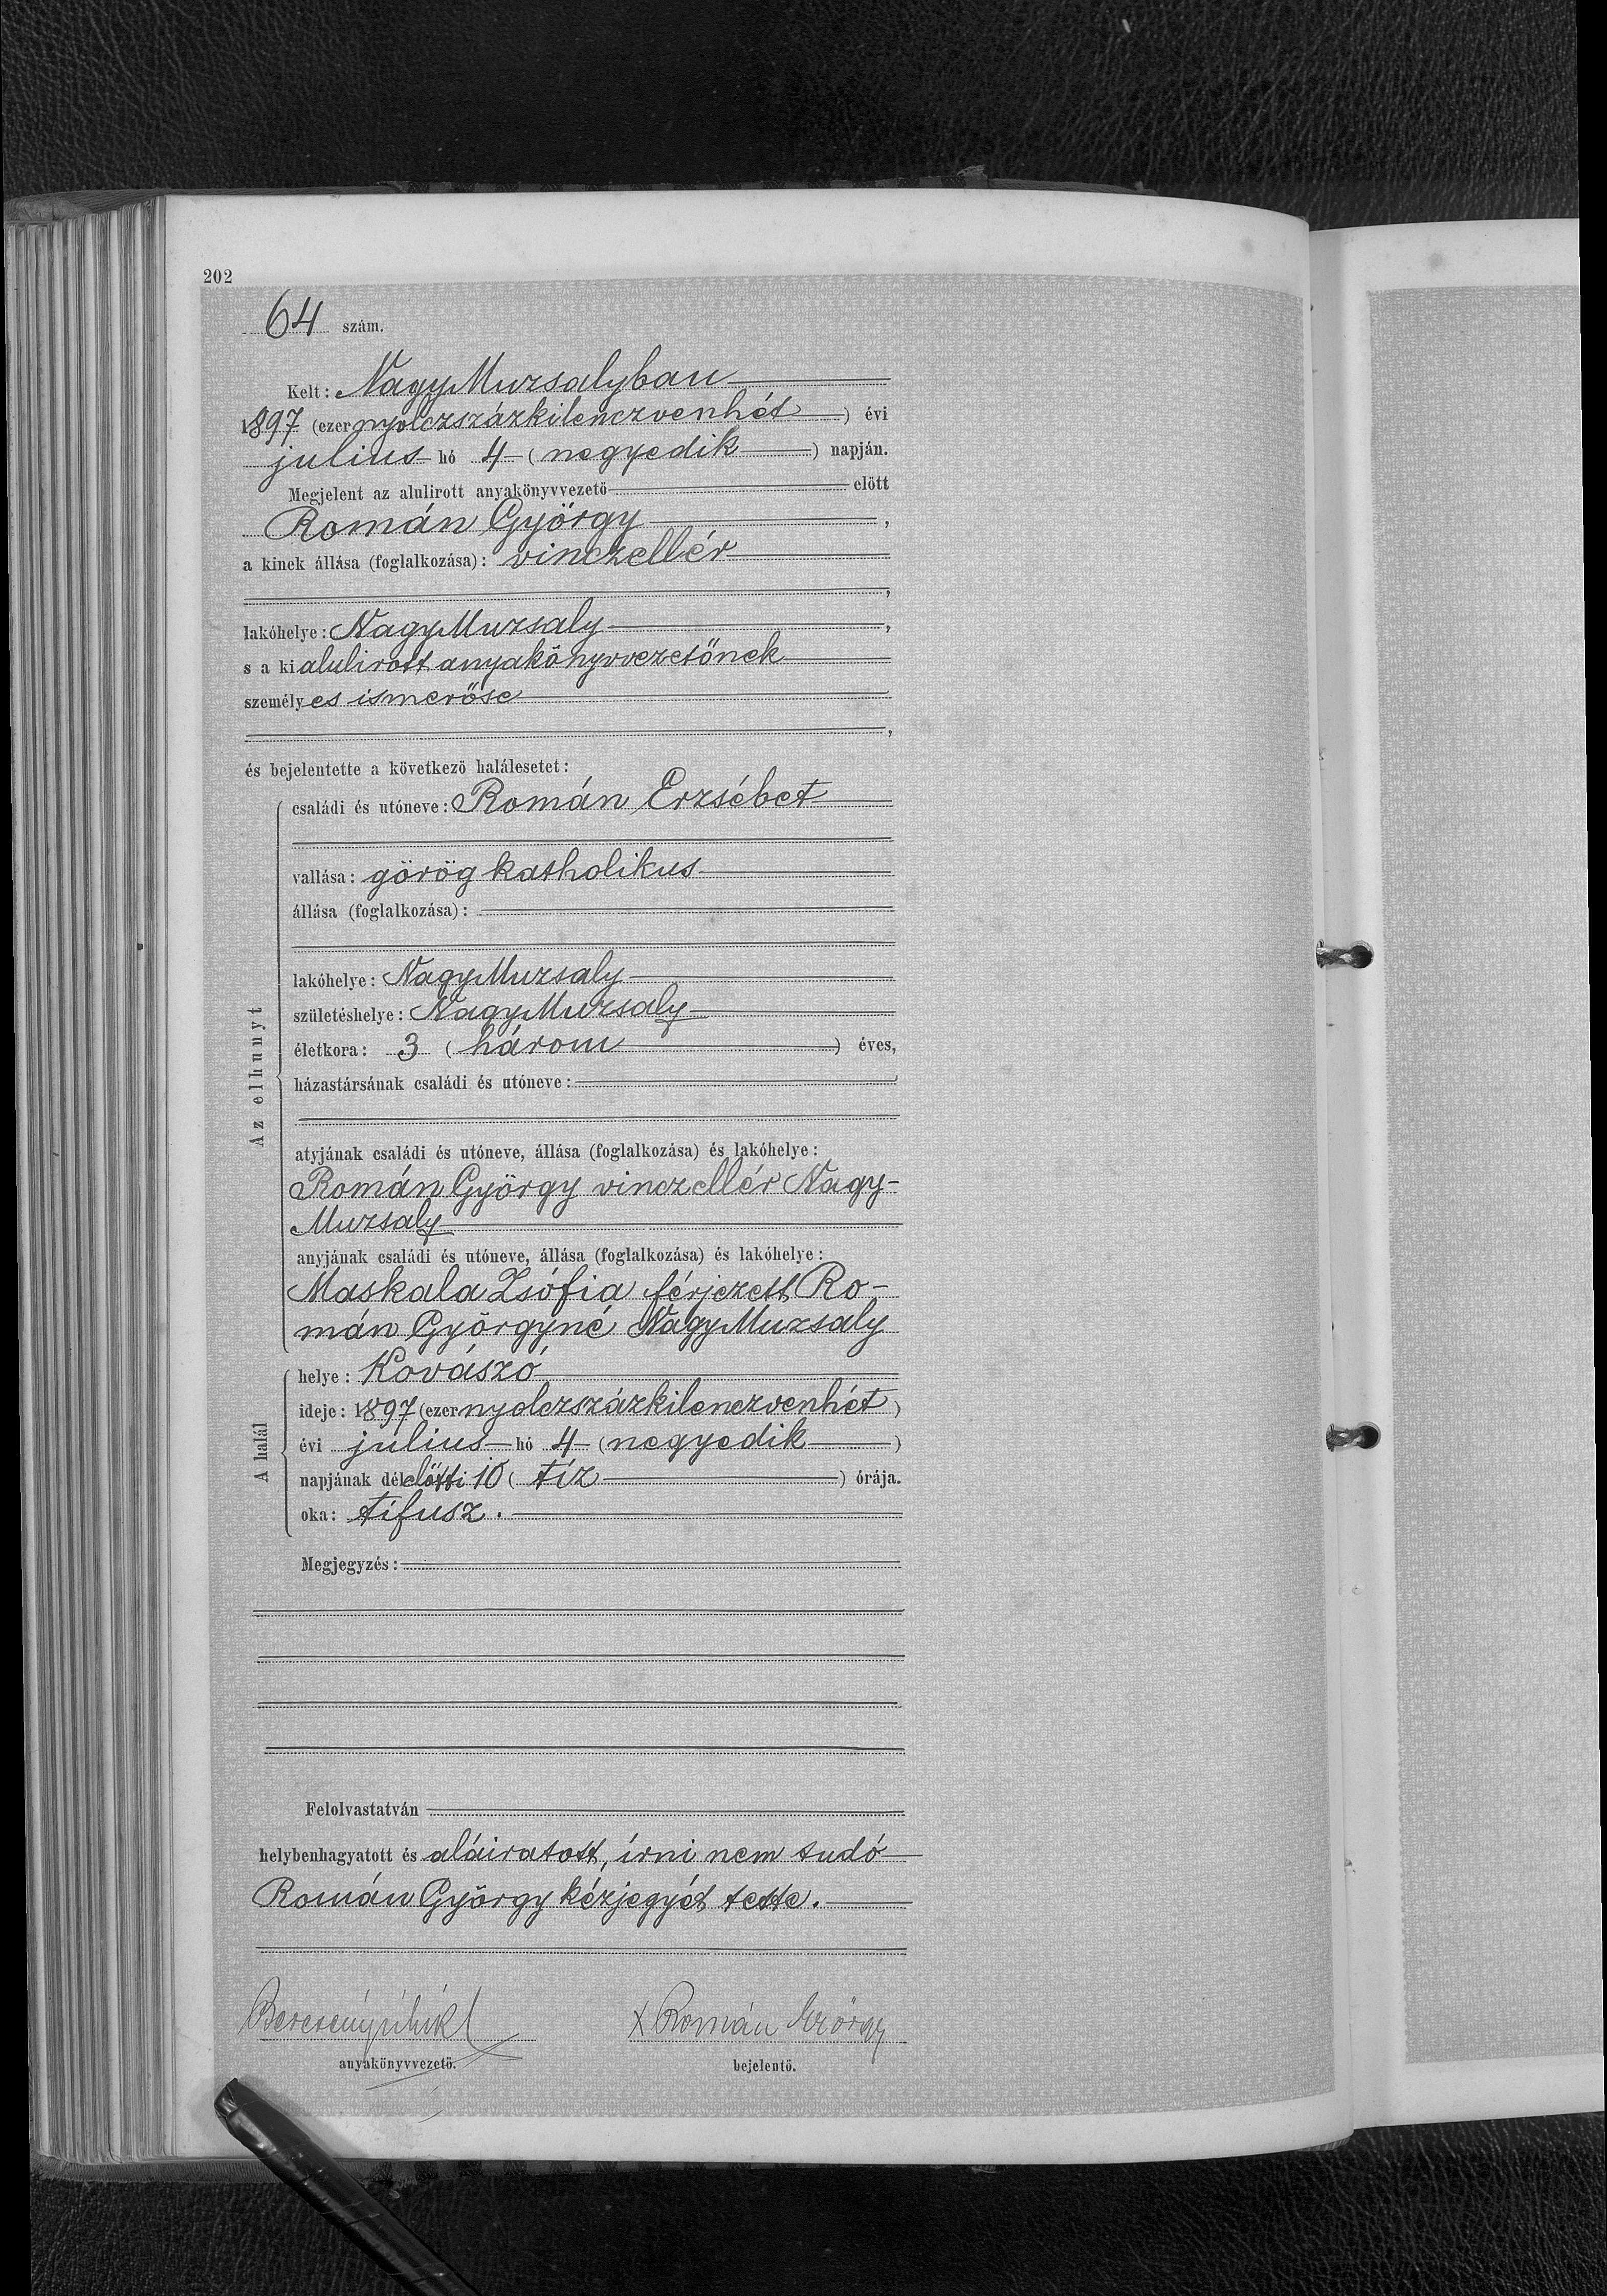 202
64 szám.
Kelt: NagyMuzsalyban
1897 (ezernyolczszázkilenczvenhét) évi
julius hó 4 (negyedik) napján.
Megjelent az alulirott anyakönyvvezető előtt
Román György,
a kinek állása (foglalkozása): vinczellér
,
lakóhelye: NagyMuzsaly,
s a ki alulirott anyakönyvvezetőnek
személyes ismerőse
,
és bejelentette a következő halálesetet:
Az elhunyt
családi és utóneve: Román Erzsébet
vallása: görög katholikus
állása (foglalkozása):
lakóhelye: NagyMuzsaly
születéshelye: NagyMuzsaly
életkora: 3 (három) éves,
házastársának családi és utóneve:
atyjának családi és utóneve, állása (foglalkozása) és lakóhelye:
Román György vinczellér Nagy-
Muzsaly
anyjának családi és utóneve, állása (foglalkozása) és lakóhelye:
Maskala Zsófia férjezett Ro-
mán Györgyné NagyMuzsaly
A halál
helye: Kovászó
ideje: 1897 (ezernyolczszázkilenczvenhét)
évi július hó 4 (negyedik)
napjának délelőtti 10 (tíz) órája.
oka: tífusz.
Megjegyzés:
Felolvastatván
helybenhagyatott és aláiratott, írni nem tudó
Román György kézjegyét tette.
x Román György
anyakönyvvezető. bejelentő.